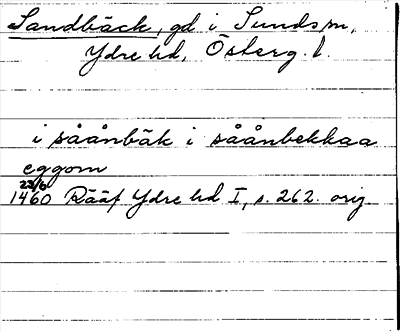 Sandbäck, gd i Sunds sn,
Ydre hd, Österg. l.
i såånbäk i såånbekkaa
eggom
23/6
1460 Rääf Ydre hd I, s. 262. orig